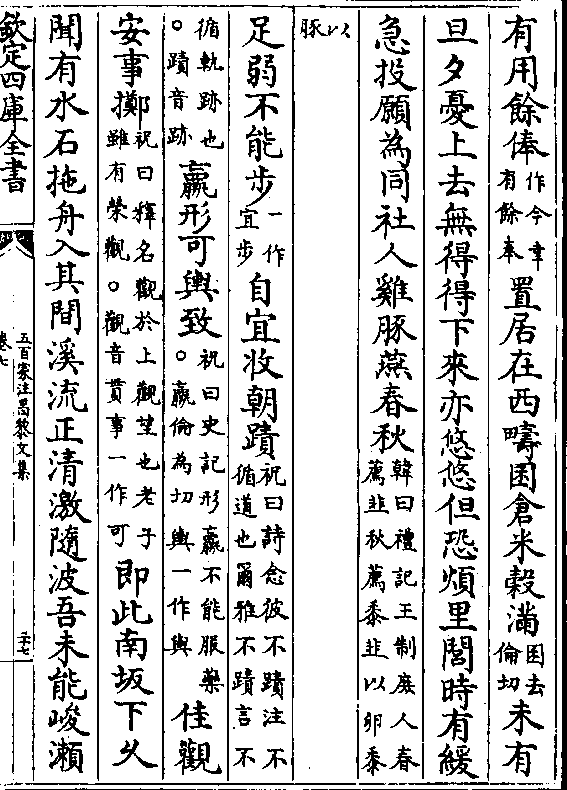 有用餘俸作今幸有餘奉置居在西疇囷倉米穀滿囷去倫切未有
旦夕憂上去無得得下來亦悠悠但恐煩里閭時有緩
急投願為同社人雞豚燕春秋韓曰禮記王制庶人春薦韭秋薦黍韭以卵黍
以豚
足弱不能步一作宜步自宜收朝蹟祝曰詩念彼不蹟注不循道也爾雅不蹟言不
循軌跡也。蹟音跡羸形可輿致祝曰史記形羸不能服藥。羸倫為切輿一作與佳觀
安事擲祝曰釋名觀於上觀望也老子雖有榮觀。觀音貫事一作可即此南坂下久
聞有水石拖舟入其間溪流正清激隨波吾未能峻瀨
欽定四庫全書
五百家注昌黎文集
卷七
二十七